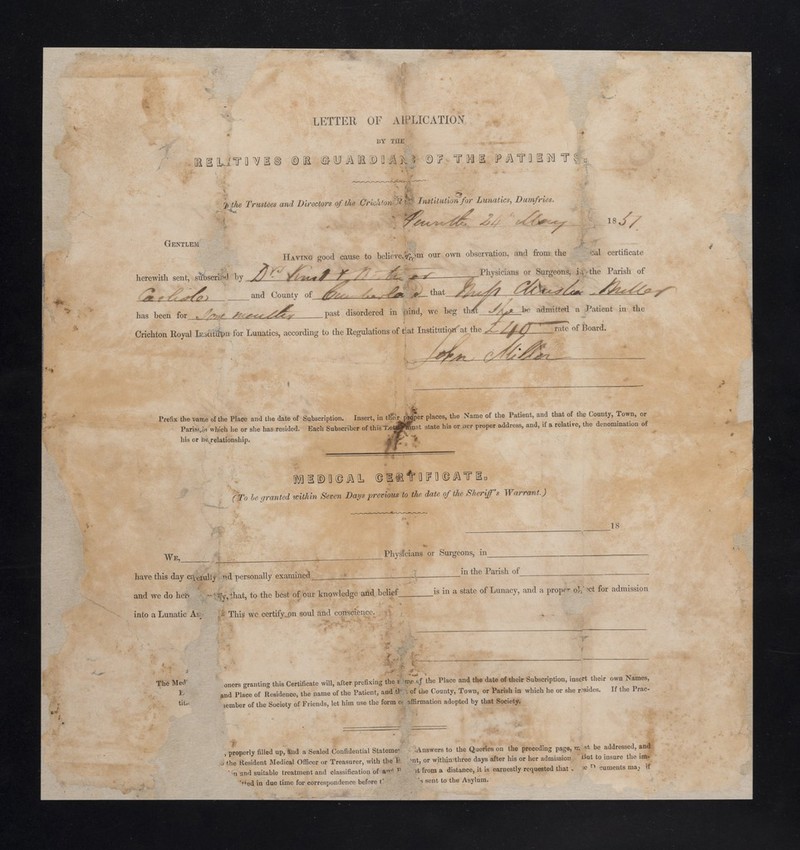 LETTER OF APPLICATION
BY THE
RELATIVES OR GUARDIANS OF THE PATIENTS.
the Trustees and Directors of the Crichton Institution for Lunatics, Dumfries.
Penrith 24 May 1851
GENTLEM
HAVING good cause to believe, from our own observation, and from the cal certificate
herewith sent, subscribed by Drs Physicians or Surgeons, in the Parish of
Carlisle and County of Cumberland that Miss Miller
has been for months past disordered in mind, we beg that She be admitted a Patient in the
Crichton Royal Institution for Lunatics, according to the Regulations of that Institution at the £40 rate of Board.
John Miller
Prefix the name of the Place and the date of Subscription. Insert, in their proper places, the Name of the Patient, and that of the County, Town, or
Parish, in which he or she has resided. Each Subscriber of this Letter must state his or her proper address, and, if a relative, the denomination of
his or her relationship.
MEDICAL CERTIFICATE.
(To be granted within Seven Days previous to the date of the Sheriff's Warrant.)
18
WE, Physicians or Surgeons, in
have this day carefully and personally examined in the Parish of
and we do here that, to the best of our knowledge and belief is in a state of Lunacy, and a proper object for admission
into a Lunatic As This we certify, on soul and conscience.
The Med oners granting this Certificate will, after prefixing the name of the Place and the date of their Subscription, insert their own Names,
and Place of Residence, the name of the Patient, and th of the County, Town, or Parish in which he or she resides. If the Prac-
tit ember of the Society of Friends, let him use the form of affirmation adopted by that Society.
, properly filled up, and a Sealed Confidential Stateme Answers to the Queries on the preceding page, must be addressed, and
the Resident Medical Officer or Treasurer, with the P nt, or within three days after his or her admission But to insure the im-
n and suitable treatment and classification of from a distance, it is earnestly requested that cuments may if
in due time for correspondence before sent to the Asylum.